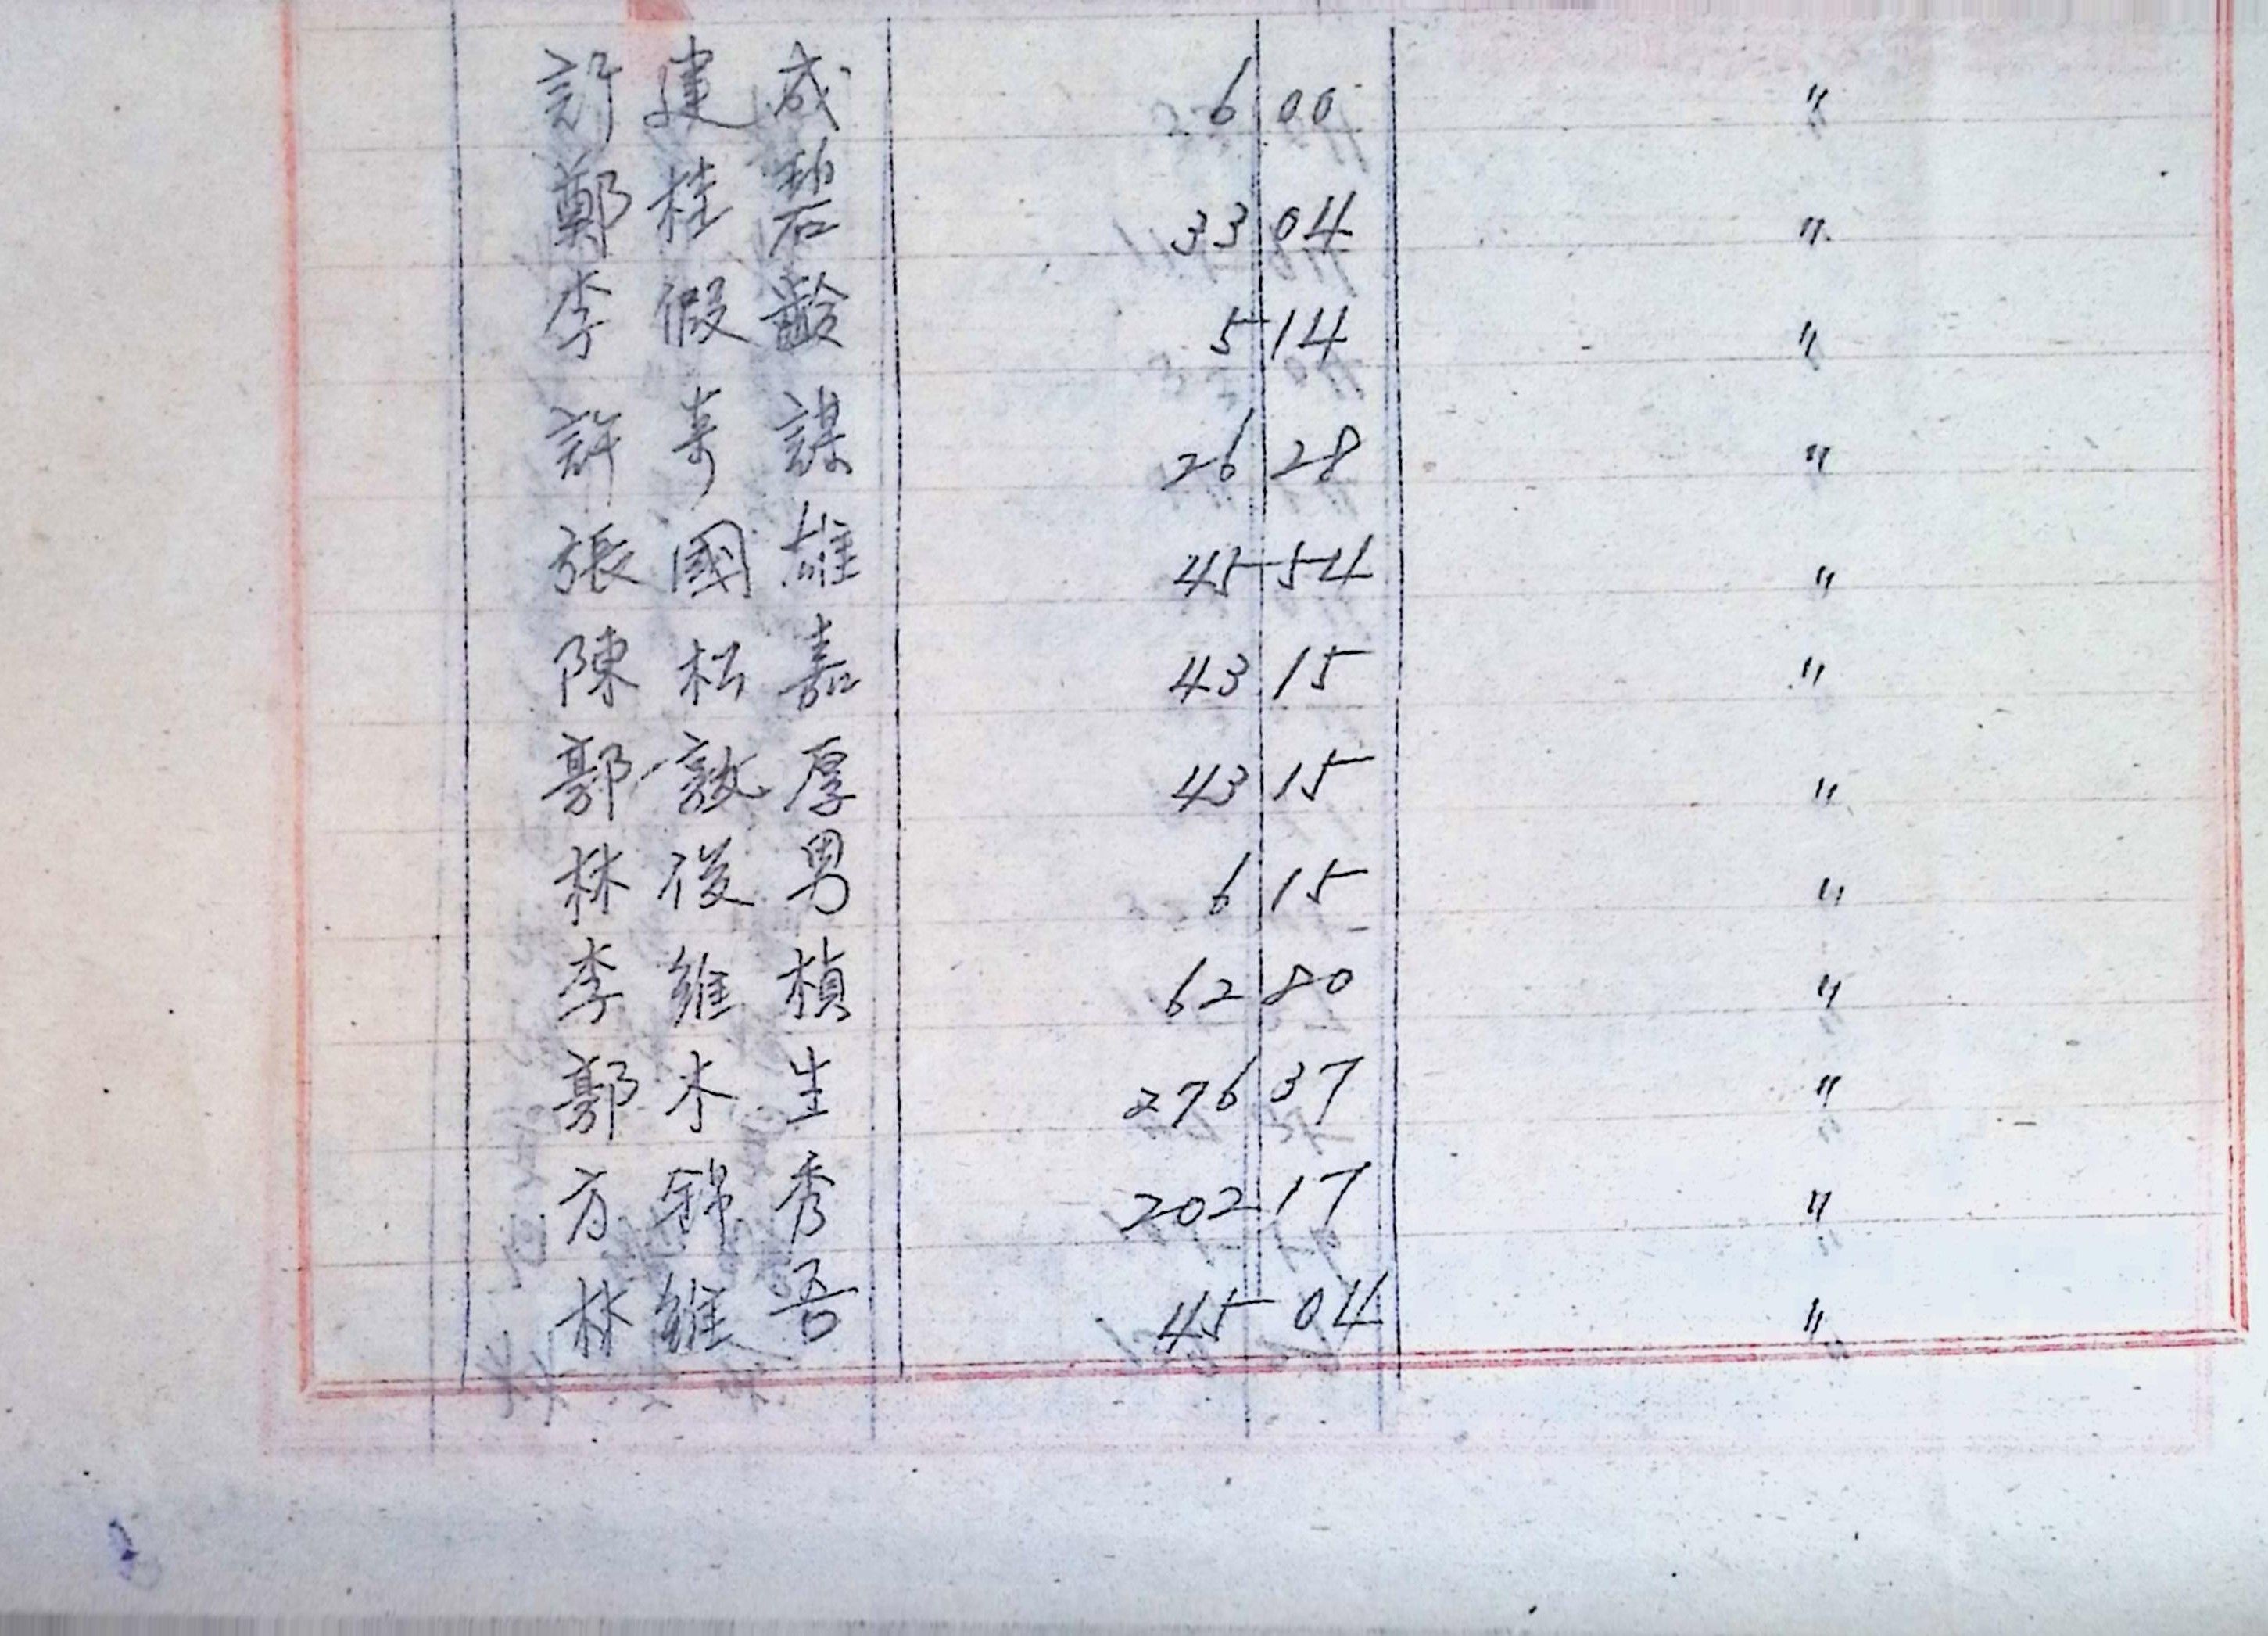 許建成 6 00 "
鄭桂碧 33 04 "
李假齡 5 14 "
許奇謀 26 28 "
張國雄 45 54 "
陳松嘉 43 15 "
郭敦厚 43 15 "
林俊男 6 15 "
李維楨 62 80 "
郭木生 276 37 "
方錦秀 202 17 "
林維吾 45 04 "